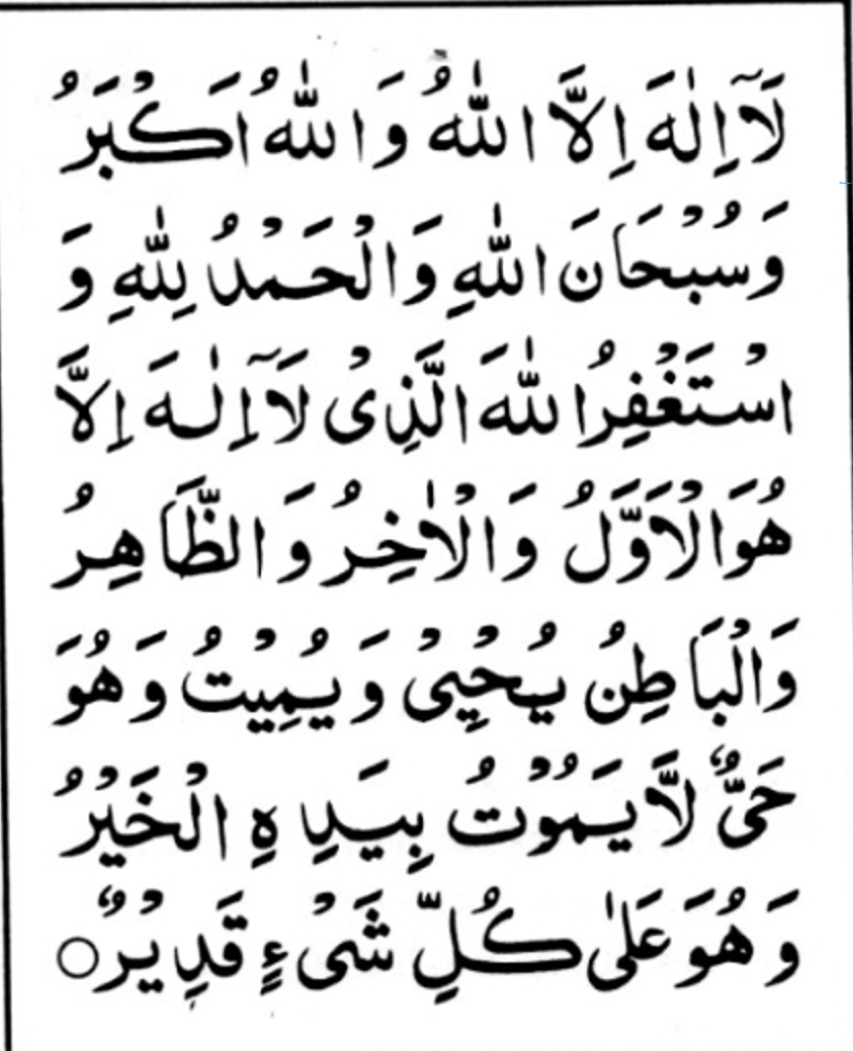 لَآ اِلٰهَ اِلَّا اللّٰهُ وَاللّٰهُ اَكْبَرُ
وَسُبْحَانَ اللّٰهِ وَالْحَمْدُ لِلّٰهِ وَ
اسْتَغْفِرُ اللّٰهَ الَّذِىْ لَآ اِلٰهَ اِلَّا
هُوَ الْاَوَّلُ وَالْاٰخِرُ وَالظَّاهِرُ
وَالْبَاطِنُ يُحْيِىْ وَيُمِيْتُ وَهُوَ
حَىٌّ لَّا يَمُوْتُ بِيَدِهِ الْخَيْرُ
وَهُوَ عَلٰى كُلِّ شَىْءٍ قَدِيْرٌ ○